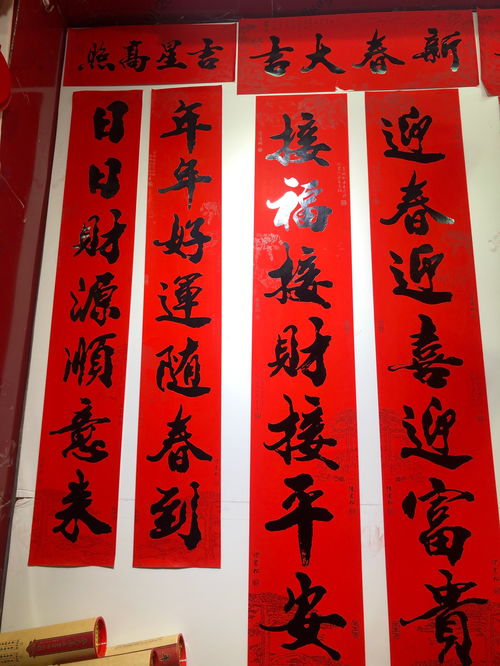 新春大吉
迎春迎喜迎富貴
接福接財接平安
吉星高照
年年好運随春到
日日財源順意来